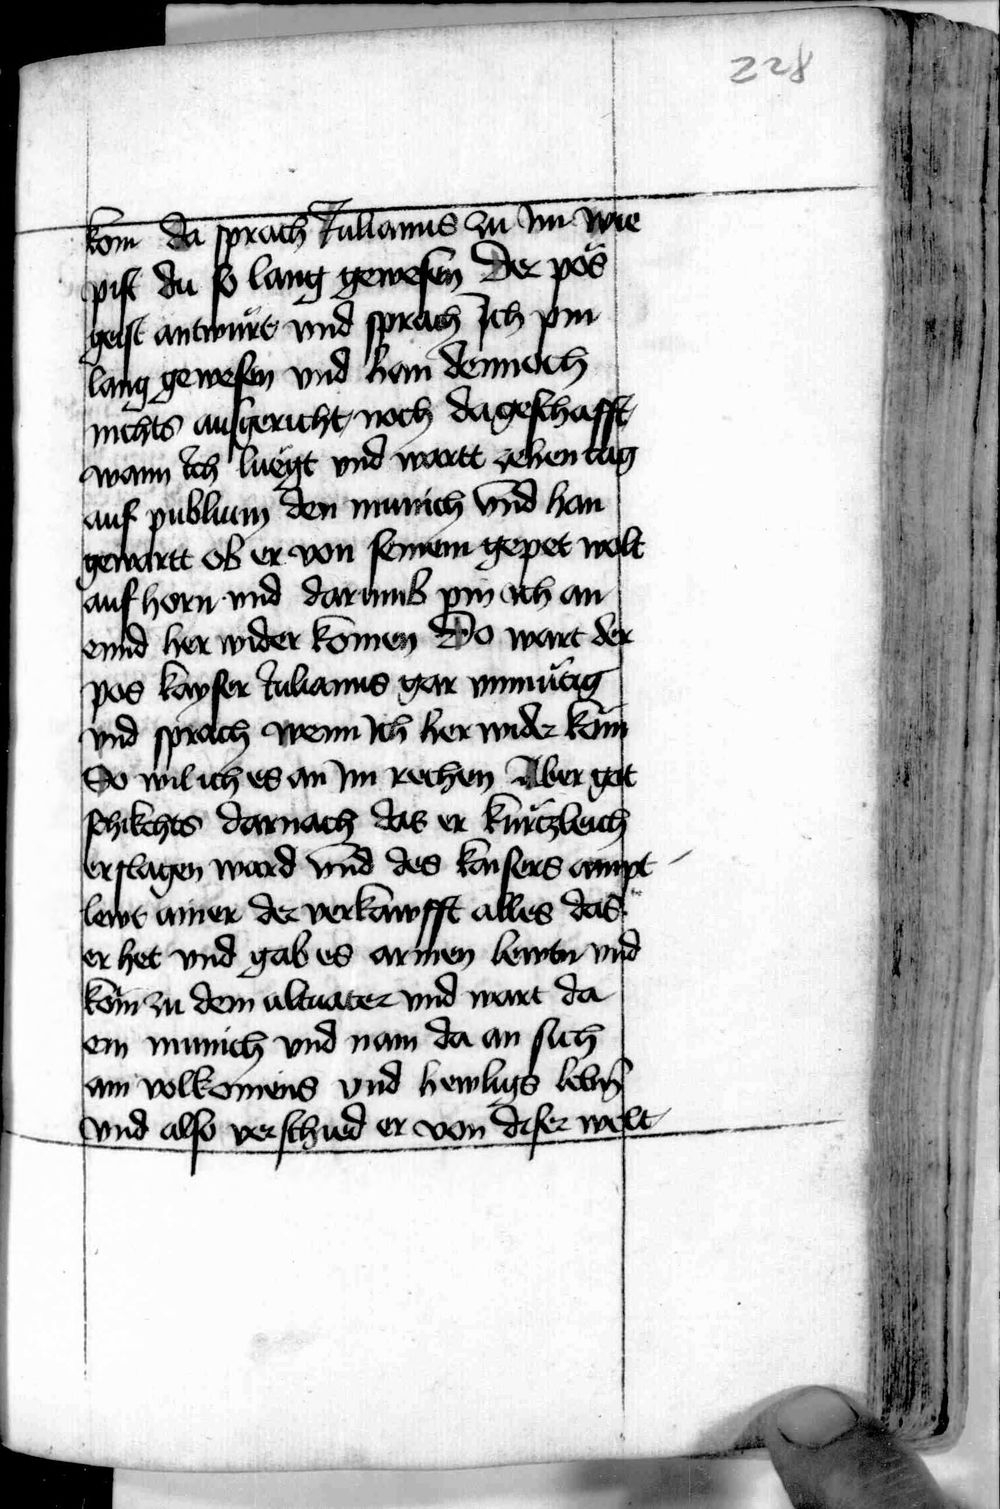 228
kom da sprach Julianus zu im wie
pist du so lang gewesen Der pös
geist antwürt und sprach Ich pin
lang gewesen vnd han dennoch
nichts ausgericht noch da geschafft
wann ich luegt vnd wartt zehen tag
auf publium den munich vnd han
gewartt ob er von seinem gepet wolt
auf horn vnd darumb pin ich an
ennd her wider komen Do wart der
pos kayser Julianus gar vnmütig
vnd sprach wenn ich her wider köm
So wil ich es an im rechen Aber got
schikchts darnach das er kürczleich
erslagen ward vnd des kaisers ampt
lewt ainer der verkawfft alles das
er het vnd gab es armen lewtn vnd
köm zu dem altuater vnd wart da
ein munich vnd nam da an sich
ain volkomens vnd heyligs lebn
vnd also verschied er von diser welt